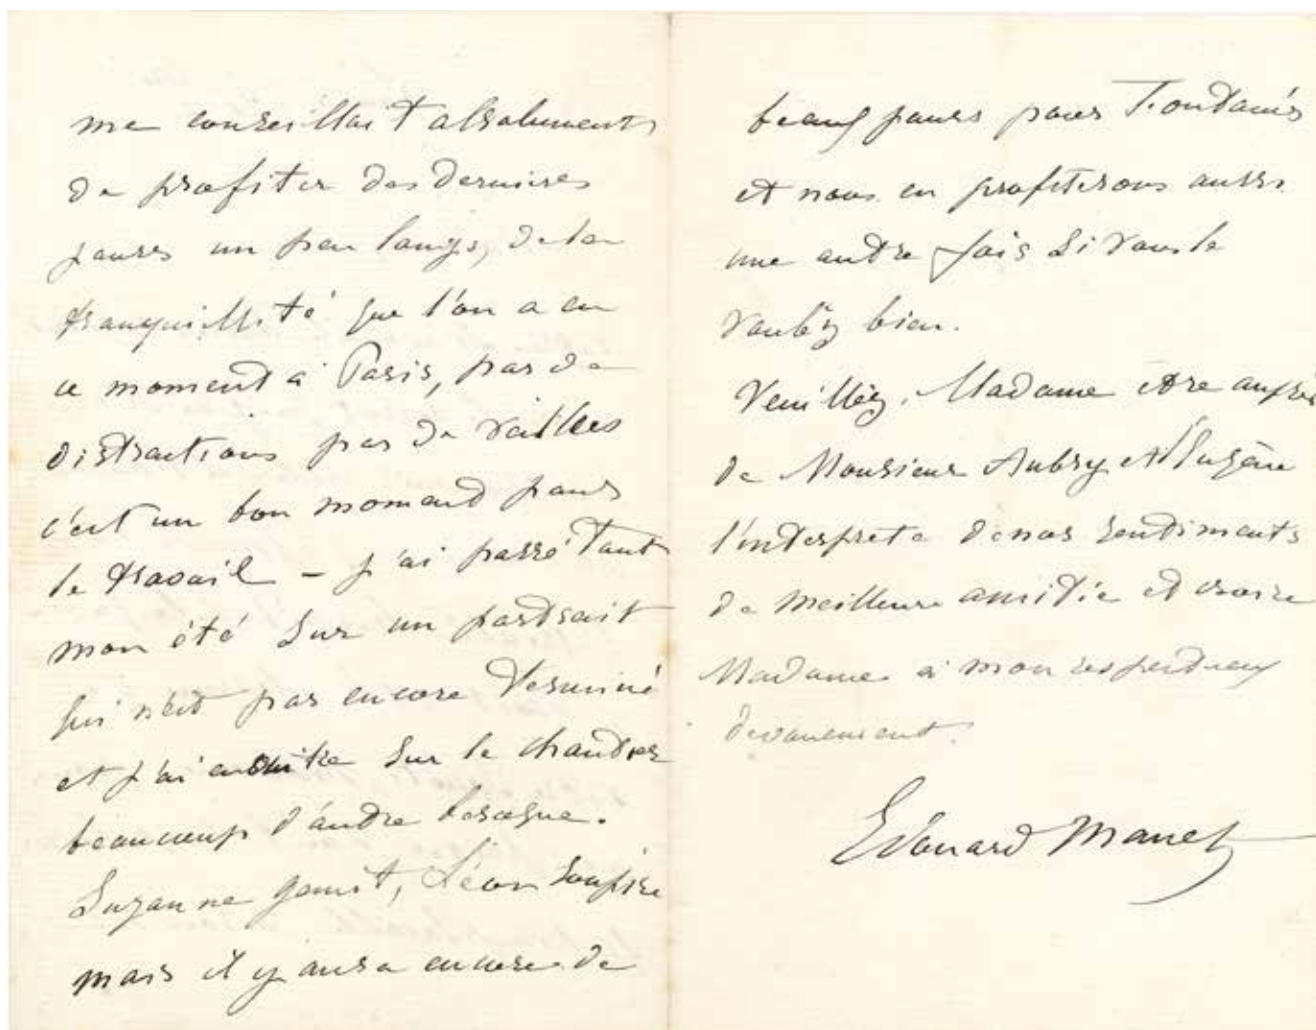 me conseillait absolument
de profiter des derniers
jours un peu longs, de la
tranquillité que l'on a en
ce moment à Paris, pas de
distractions pas de veillées
c'est un bon moment pour
le travail – j'ai passé tout
mon été sur un portrait
qui n'est pas encore terminé
et j'ai ensuite sur le chantier
beaucoup d'autre besogne.
Suzanne gémit, Léon soupire
mais il y aura encore de
beaux jours pour
et nous en profiterons aussi
une autre fois si vous le
voulez bien.
Veuillez, Madame être auprès
de Monsieur Aubry et d'Eugène
l'interprète de nos sentiments
de meilleure amitié et croire
Madame à mon respectueux
dévouement.
Edouard Manet